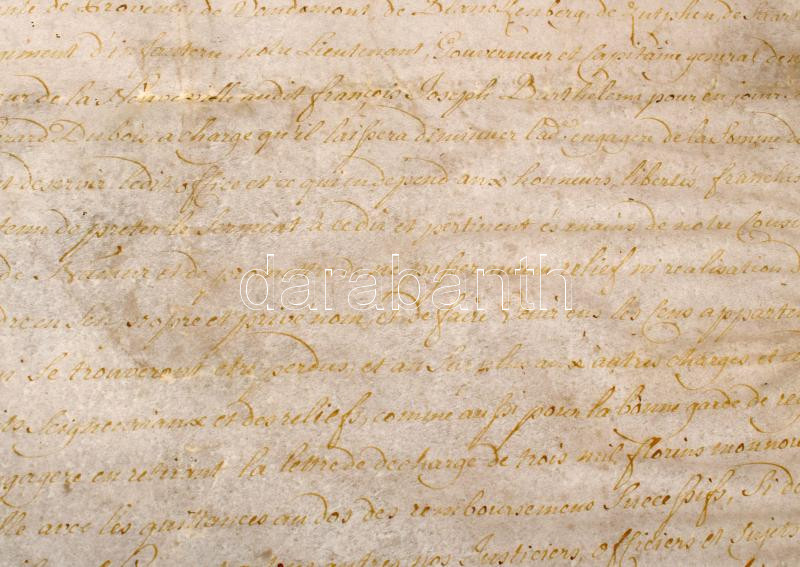 de Provence, de Vaudamont, de Blanckenberg, de Zutphen, de
d'infanterie notre Lieutenant, Gouverneur et Capitaine general de
de la audit françois Joseph Barthelemi pour en jouir
Dubois, a charge qu'il laissera diminuer lad. engagere de la Somme de
deservir ledit office et ce qui en depend aux honneurs, libertés,
de prêter le Serment à ce dû et pertinent és mains de notre Cousin
de Namur et de ni relief ni realisation
en Son propre et privé nom, et de faire Venir ens les Cens
Se trouveront etre perdus, et au Surplus aux autres charges et
Seigneuriaux et des reliefs, comme aussi pour la bonne garde de
en retirant la lettre de decharge de trois mil florins monnoie
avec les quittances au dos des remboursemens Successifs, Si
autres nos Justiciers, officiers et Sujets
darabanth